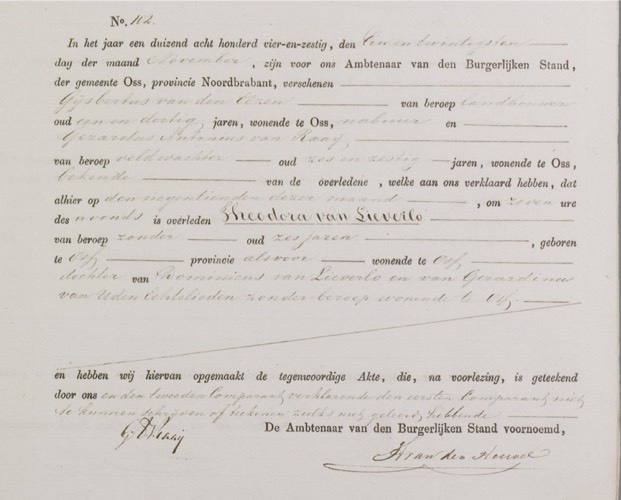 No. 112.
In het jaar een duizend acht honderd vier-en-zestig, den Een en twintigsten
dag der maand November, zijn voor ons Ambtenaar van den Burgerlijken Stand,
der gemeente Oss, provincie Noordbrabant, verschenen
Gijsbertus van den Elzen van beroep landbouwer
oud een en dertig jaren, wonende te Oss, nabuur en
Gerardus Antonius van Raaij,
van beroep veldwachter oud zes en zestig jaren, wonende te Oss,
bekende van de overledene, welke aan ons verklaard hebben, dat
alhier op den negentienden dezer maand, om zeven ure
des avonds is overleden Theodora van Lieverlo
van beroep zonder oud zes jaren, geboren
te Oss, provincie alsvoor wonende te Oss,
dochter van Dominicus van Lieverlo en van Gerardina
van Uden Echtelieden zonder beroep wonende te Oss,
en hebben wij hiervan opgemaakt de tegenwoordige Akte, die, na voorlezing, is geteekend
door ons en den tweeden Comparant, verklarende den eersten Comparant niet
te kunnen schrijven of teekenen zulks niet geleerd hebbende
De Ambtenaar van den Burgerlijken Stand voornoemd,